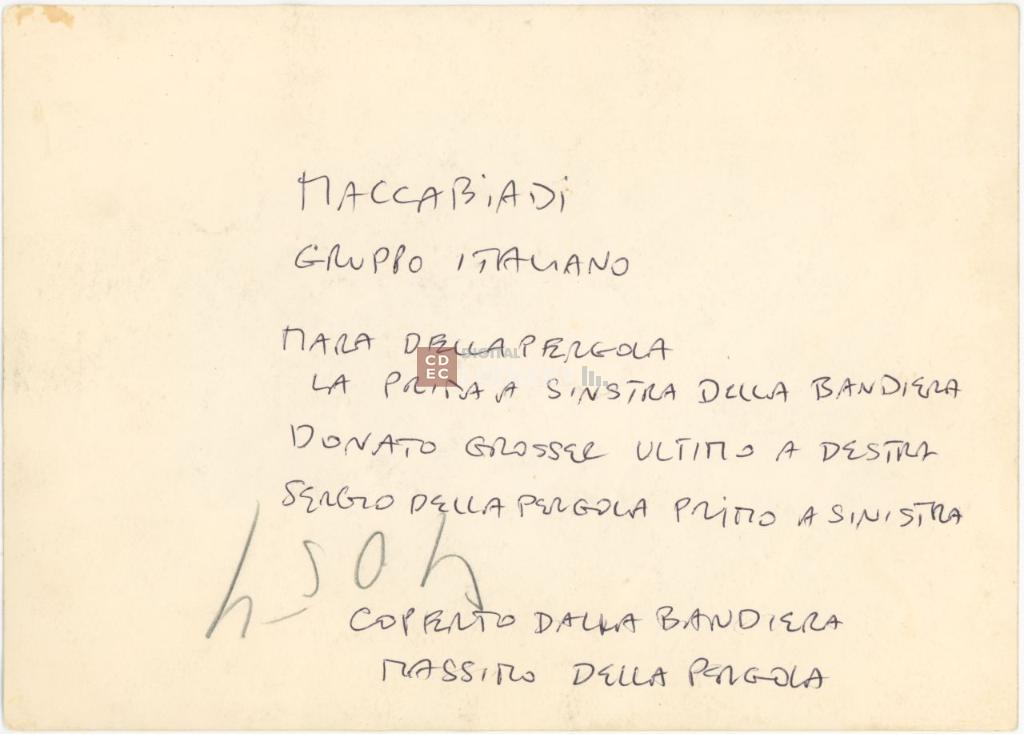 MACCABiADi
GRUPPO ITALIANO
MARA DELLA PERGOLA
CD
EC
DIGITAL
LA PRIMA A SINSTRA DELLA BANDIERA
DONATO GROSSER ULTIMO A DESTRA
SERGIO DELLA PERGOLA PRIMO A SINISTRA
COPERTO DALLA BANDIERA
MASSIMO DELLA PERGOLA